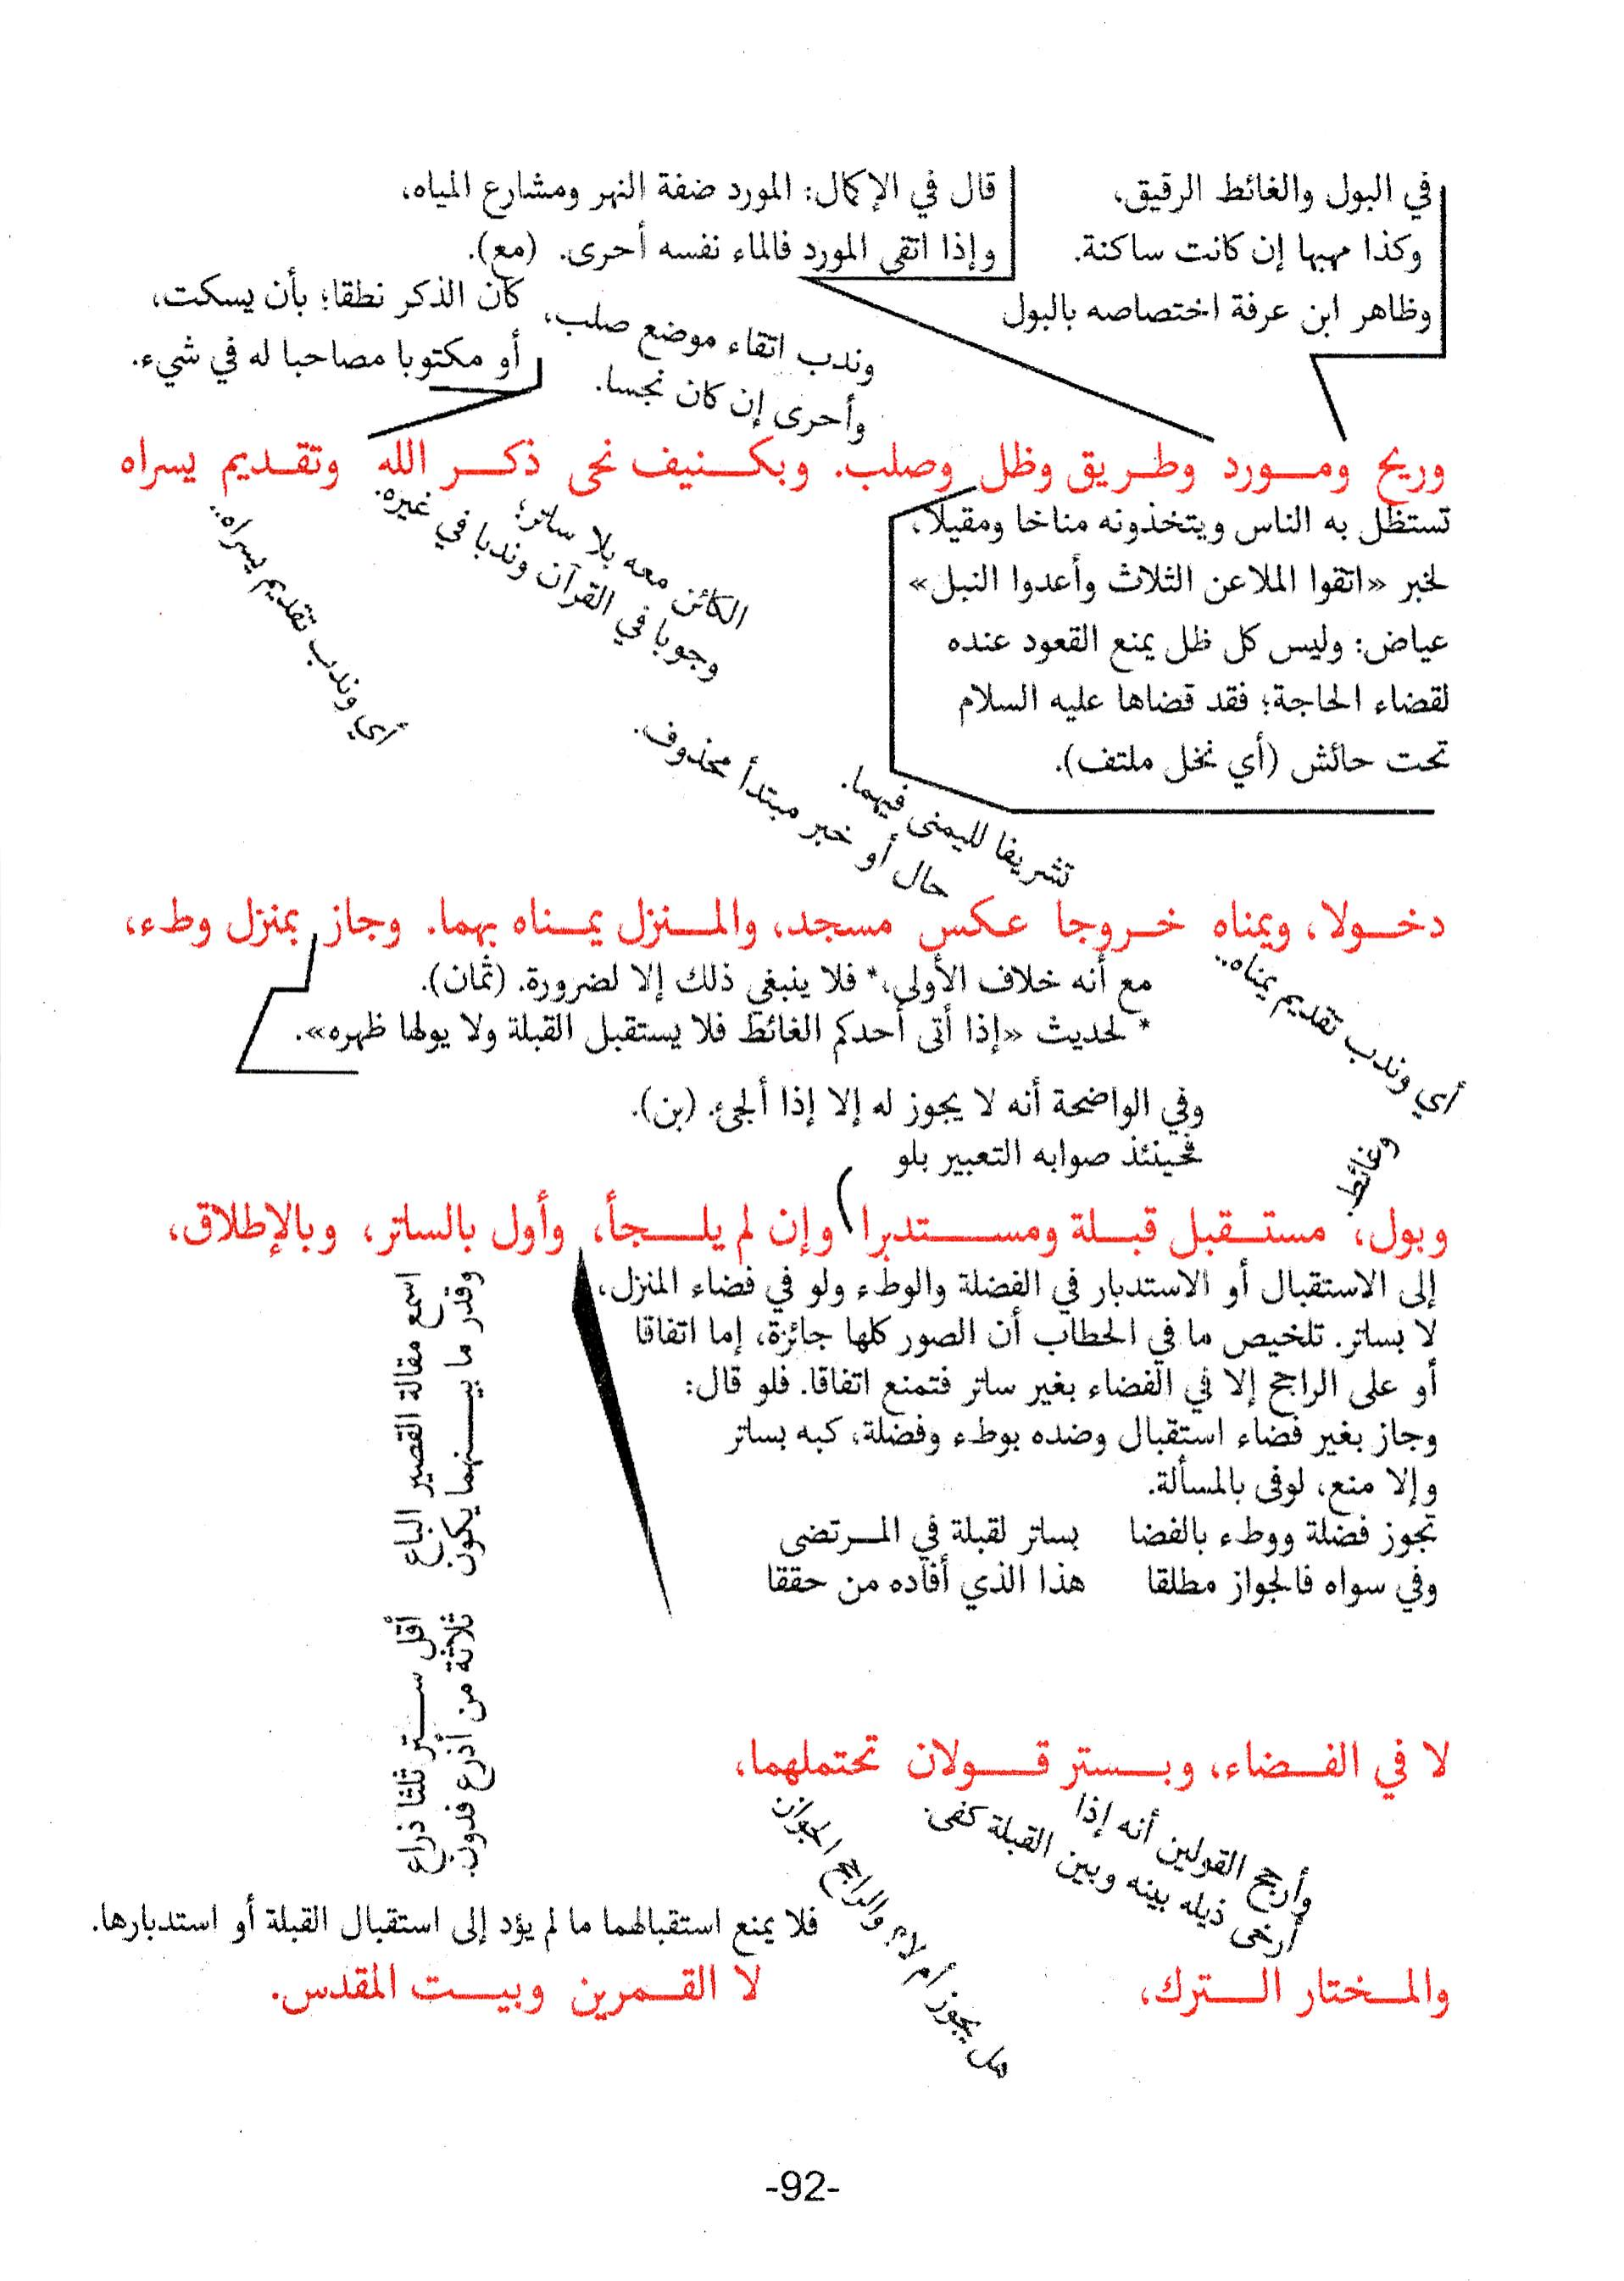 في البول والغائط الرقيق،
وكذا مهبها إن كانت ساكنة.
وظاهر ابن عرفة اختصاصه بالبول
قال في الإكمال: المورد ضفة النهر ومشارع المياه،
وإذا اتقى المورد فالماء نفسه أحرى. (مع).
وندب اتقاء موضع صلب،
وأحرى إن كان نجسا.
كان الذكر نطقا؛ بأن يسكت،
أو مكتوبا مصاحبا له في شيء.
وريح ومورد وطريق وظل وصلب. وبكنيف نحى ذكر الله وتقديم يسراه
تستظل به الناس ويتخذونه مناخا ومقيلا،
لخبر «اتقوا الملاعن الثلاث وأعدوا النبل»
عياض: وليس كل ظل يمنع القعود عنده
لقضاء الحاجة؛ فقد قضاها عليه السلام
تحت حائش (أي نخل ملتف).
الكائن معه بلا ساتر؛
وجوبا في القرآن وندبا في غيره.
أي وندب تقديم يسراه..
تشريفا لليمنى فيهما.
حال أو خبر مبتدأ محذوف.
دخولا، ويمناه خروجا عكس مسجد، والمنزل يمناه بهما. وجاز بمنزل وطء،
أي وندب تقديم يمناه..
مع أنه خلاف الأولى،* فلا ينبغي ذلك إلا لضرورة. (ثمان).
* لحديث «إذا أتى أحدكم الغائط فلا يستقبل القبلة ولا يولها ظهره».
وفي الواضحة أنه لا يجوز له إلا إذا ألجئ. (بن).
فحينئذ صوابه التعبير بلو
وغائط.
وبول، مستقبل قبلة ومستدبرا وإن لم يلجأ، وأول بالساتر، وبالإطلاق،
إلى الاستقبال أو الاستدبار في الفضلة والوطء ولو في فضاء المنزل،
لا بساتر. تلخيص ما في الحطاب أن الصور كلها جائزة، إما اتفاقا
أو على الراجح إلا في الفضاء بغير ساتر فتمنع اتفاقا. فلو قال:
وجاز بغير فضاء استقبال وضده بوطء وفضلة، كبه بساتر
وإلا منع، لوفى بالمسألة.
تجوز فضلة ووطء بالفضا بساتر لقبلة في المرتضى
وفي سواه فالجواز مطلقا هذا الذي أفاده من حققا
اسمع مقالة القصير الباع أقل ستر ثلثا ذراع
وقدر ما بينهما يكون ثلاثة من أذرع فدون.
لا في الفضاء، وبستر قولان تحتملهما،
وأرجح القولين أنه إذا
أرخى ذيله بينه وبين القبلة كفى.
هل يجوز أم لا، والراجح الجواز
فلا يمنع استقبالهما ما لم يؤد إلى استقبال القبلة أو استدبارها.
والمختار الترك، لا القمرين وبيت المقدس.
-92-